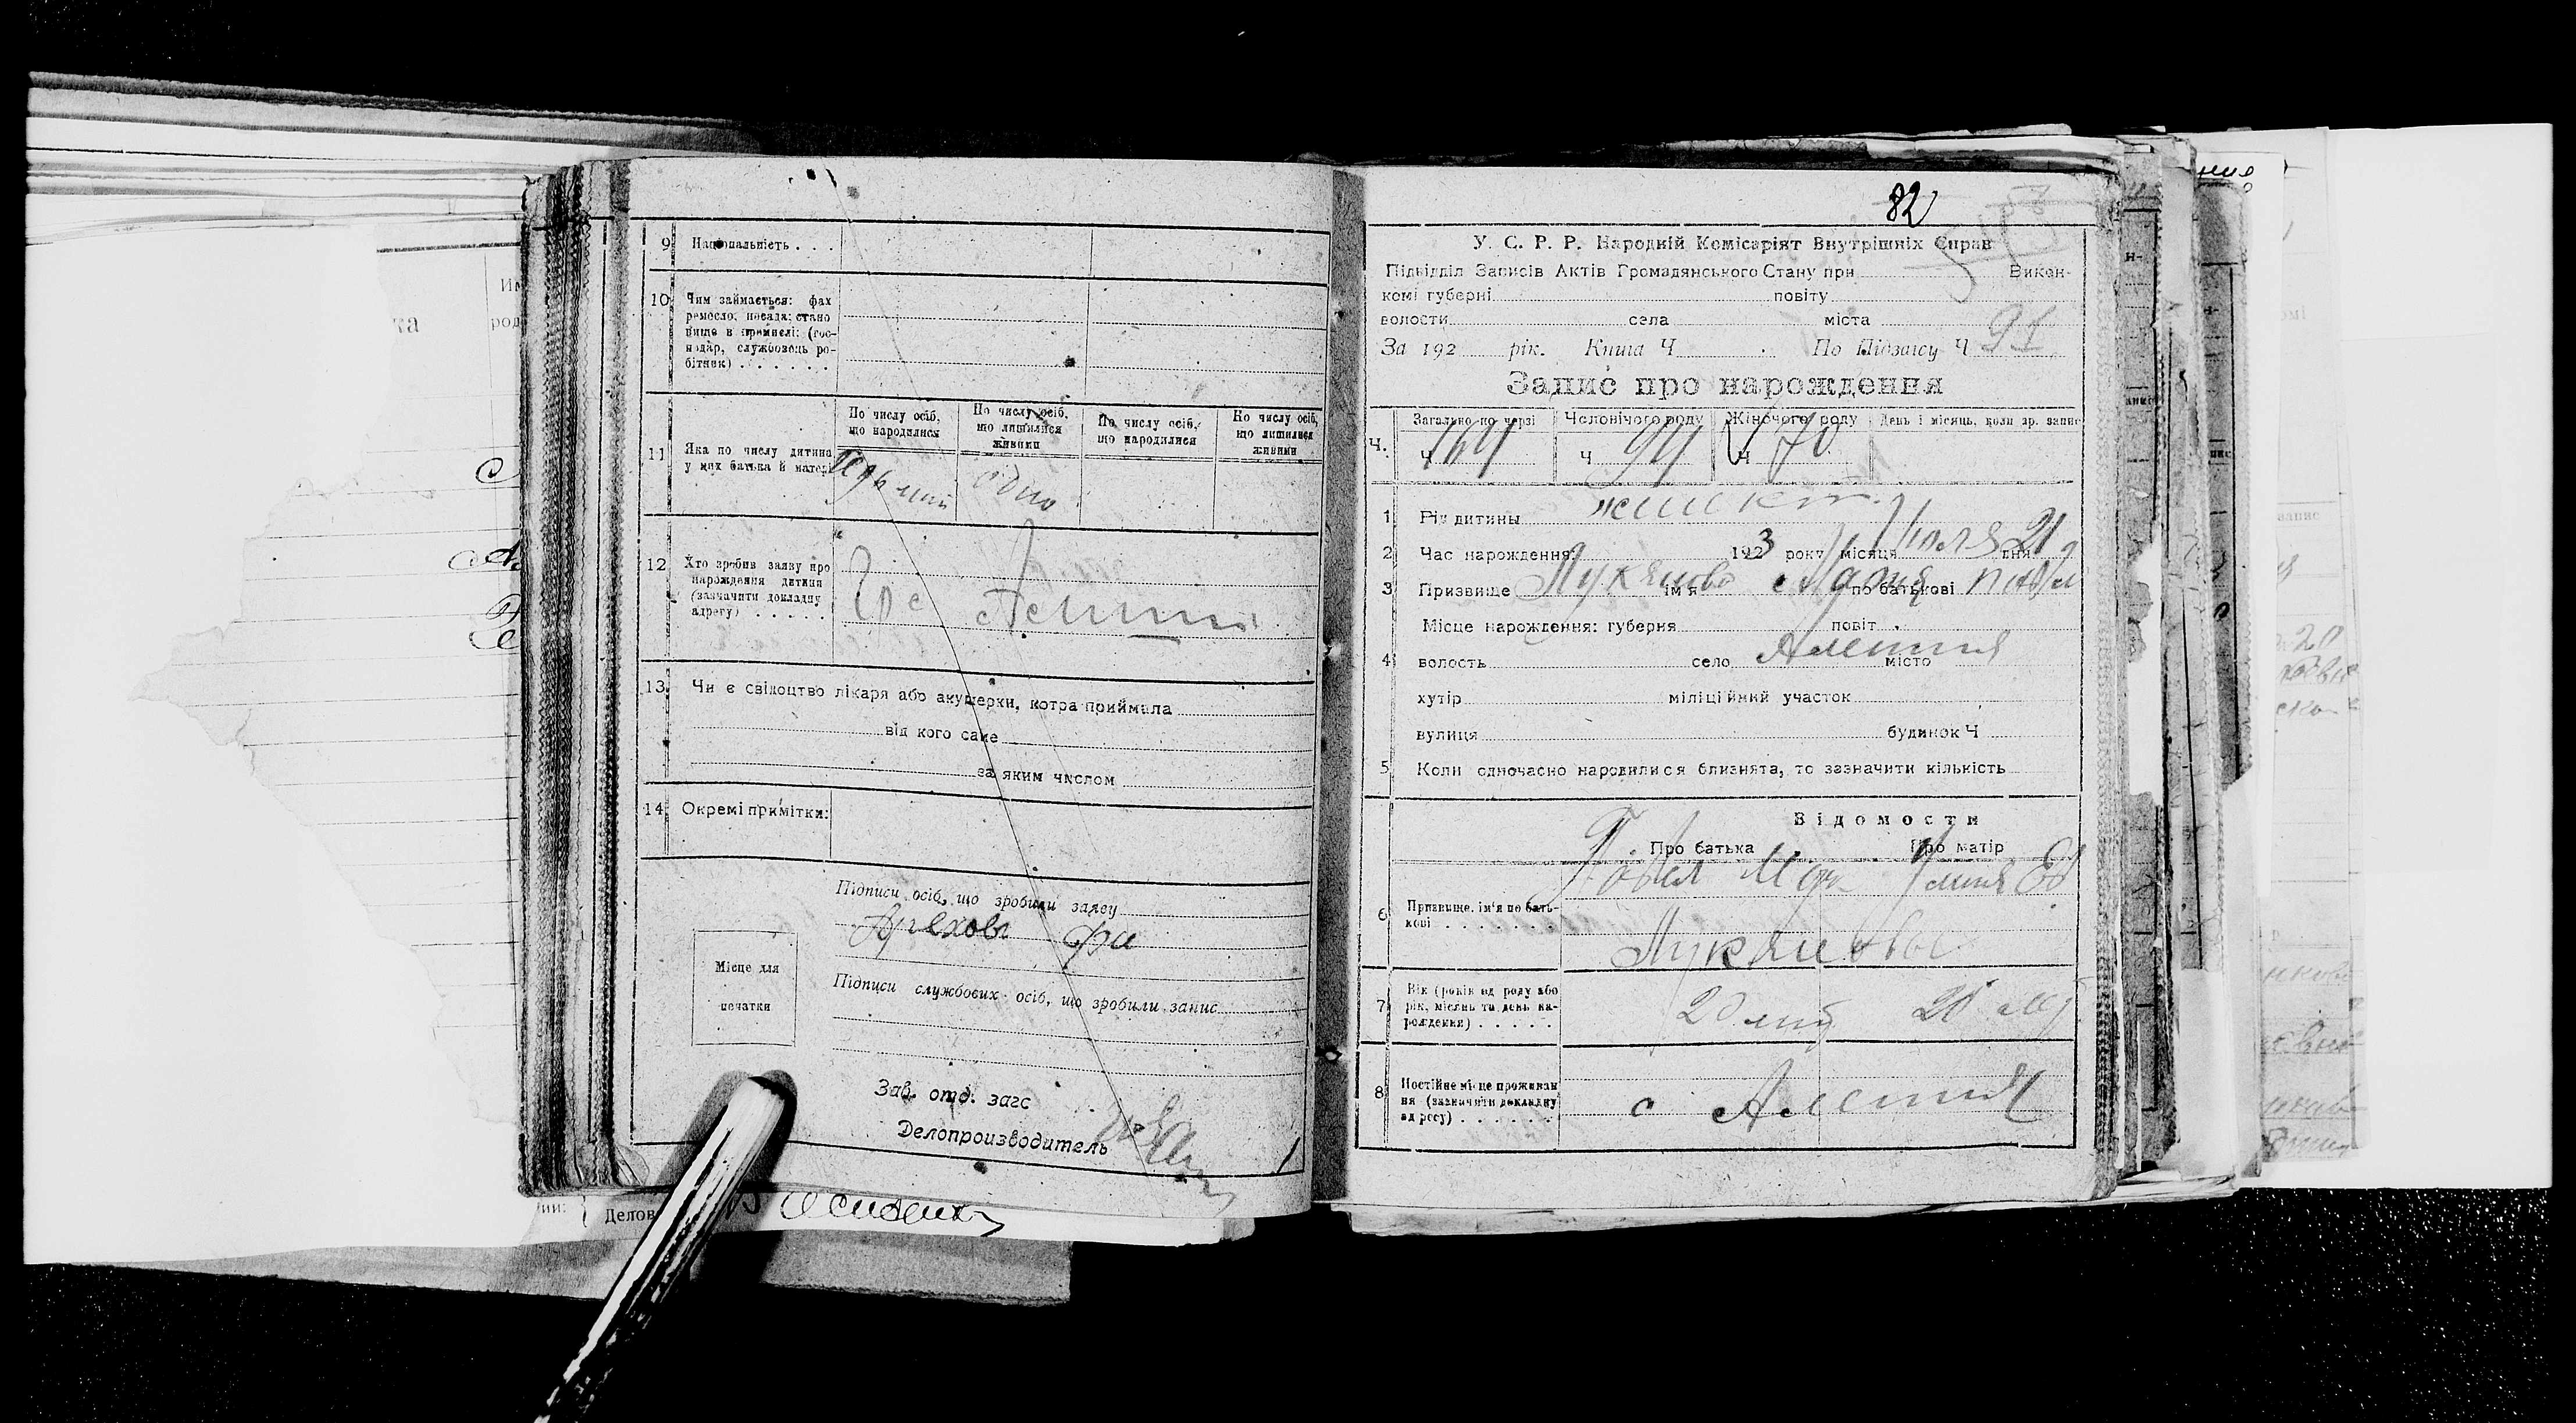 9 Національність . . .
10 Чим займається: фах
ремесло; посада: стано
вище в промислі: (гос-
подар, службовець ро-
бітник) . . . . . .
11 Яка по числу дитина
у цих батька й матері
По числу осіб,
що народилися
По числу осіб,
що лишилися
живими
По числу осіб,
що народилися
По числу осіб,
що лишилися
живими
12 Хто зробив заяву про
нарождення дитини
(зазначити докладну
адресу) . . . . .
13 Чи є свідоцтво лікаря або акушерки, котра приймала
від кого саме
за яким числом
14 Окремі примітки:
Підписи осіб, що зробили заяву
Орехов
Місце для
печатки
Підписи службових осіб, що зробили запис
Зав. отд. загс
Делопроизводитель
Делов
82
У. С. Р. Р. Народній Комісаріят Внутрішніх Справ
Підвідділ Записів Актів Громадянського Стану при Викон-
комі губерні повіту
волости села міста
За 192 рік. Книга Ч По Підзагсу Ч 91
Запис про нарождення
Ч.
Загально по черзі
Ч 164
Чоловічого роду
Ч 94
Жіночого роду
Ч 70
День і місяць, коли зр. запис
1 Рід дитины женск
2 Час нарождення 1923 року місяця Июля 21 дня
3 Призвище Лукянова ім'я Мария по батькові Павл
Місце нарождення: губерня повіт
4 волость село Алешня місто
хутір міліційний участок
вулиця будинок Ч
5 Коли одночасно народилися близнята, то зазначити кількість
Відомости
Про батька Про матір
6 Призвище, ім'я по бать-
кові . . . . . .
Павел
Лукяновы
7 Вік (років од роду або
рік, місяць та день на-
рождення) . . . . .
20 лет
20 лет
8 Постійне місце проживан
ня (зазначити докладну
адресу) . . . . . .
с Алешня